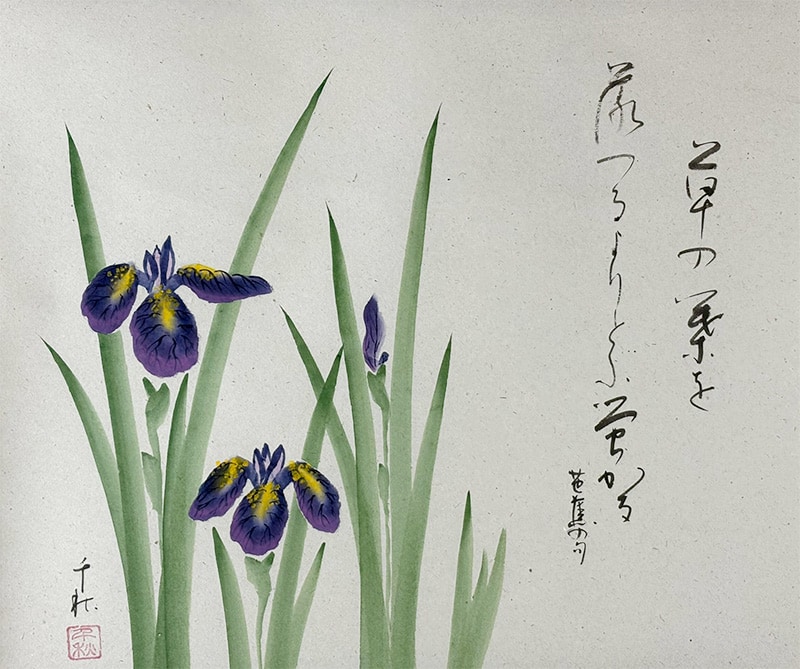 草の葉を
落つるよりとふ蛍かな
芭蕉の句
千秋
千秋